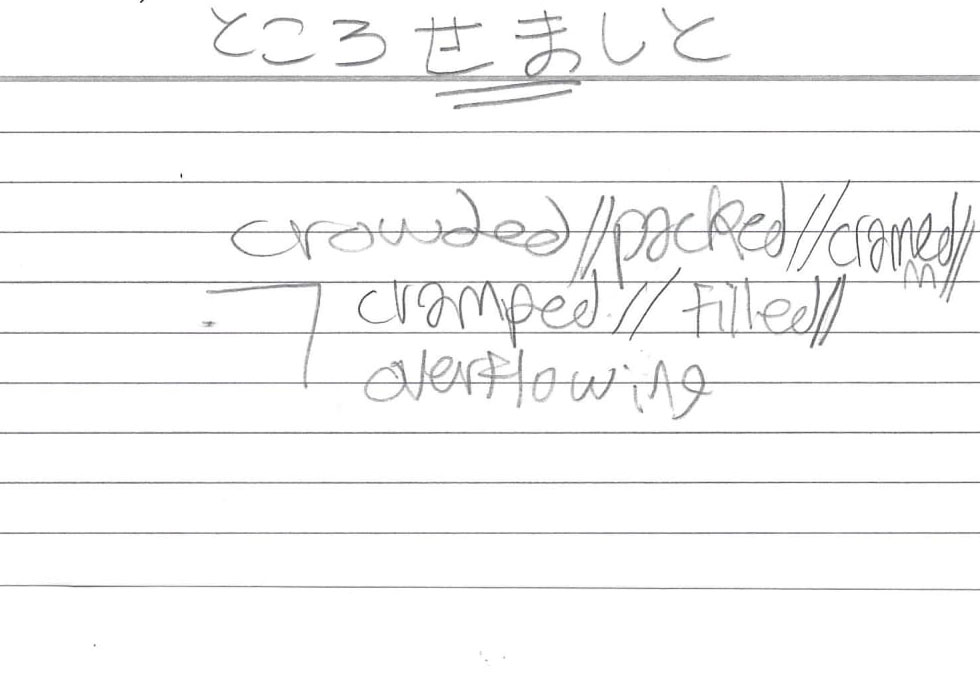 ところせましと
crowded//packed//crammed//
cramped//filled//
overflowing